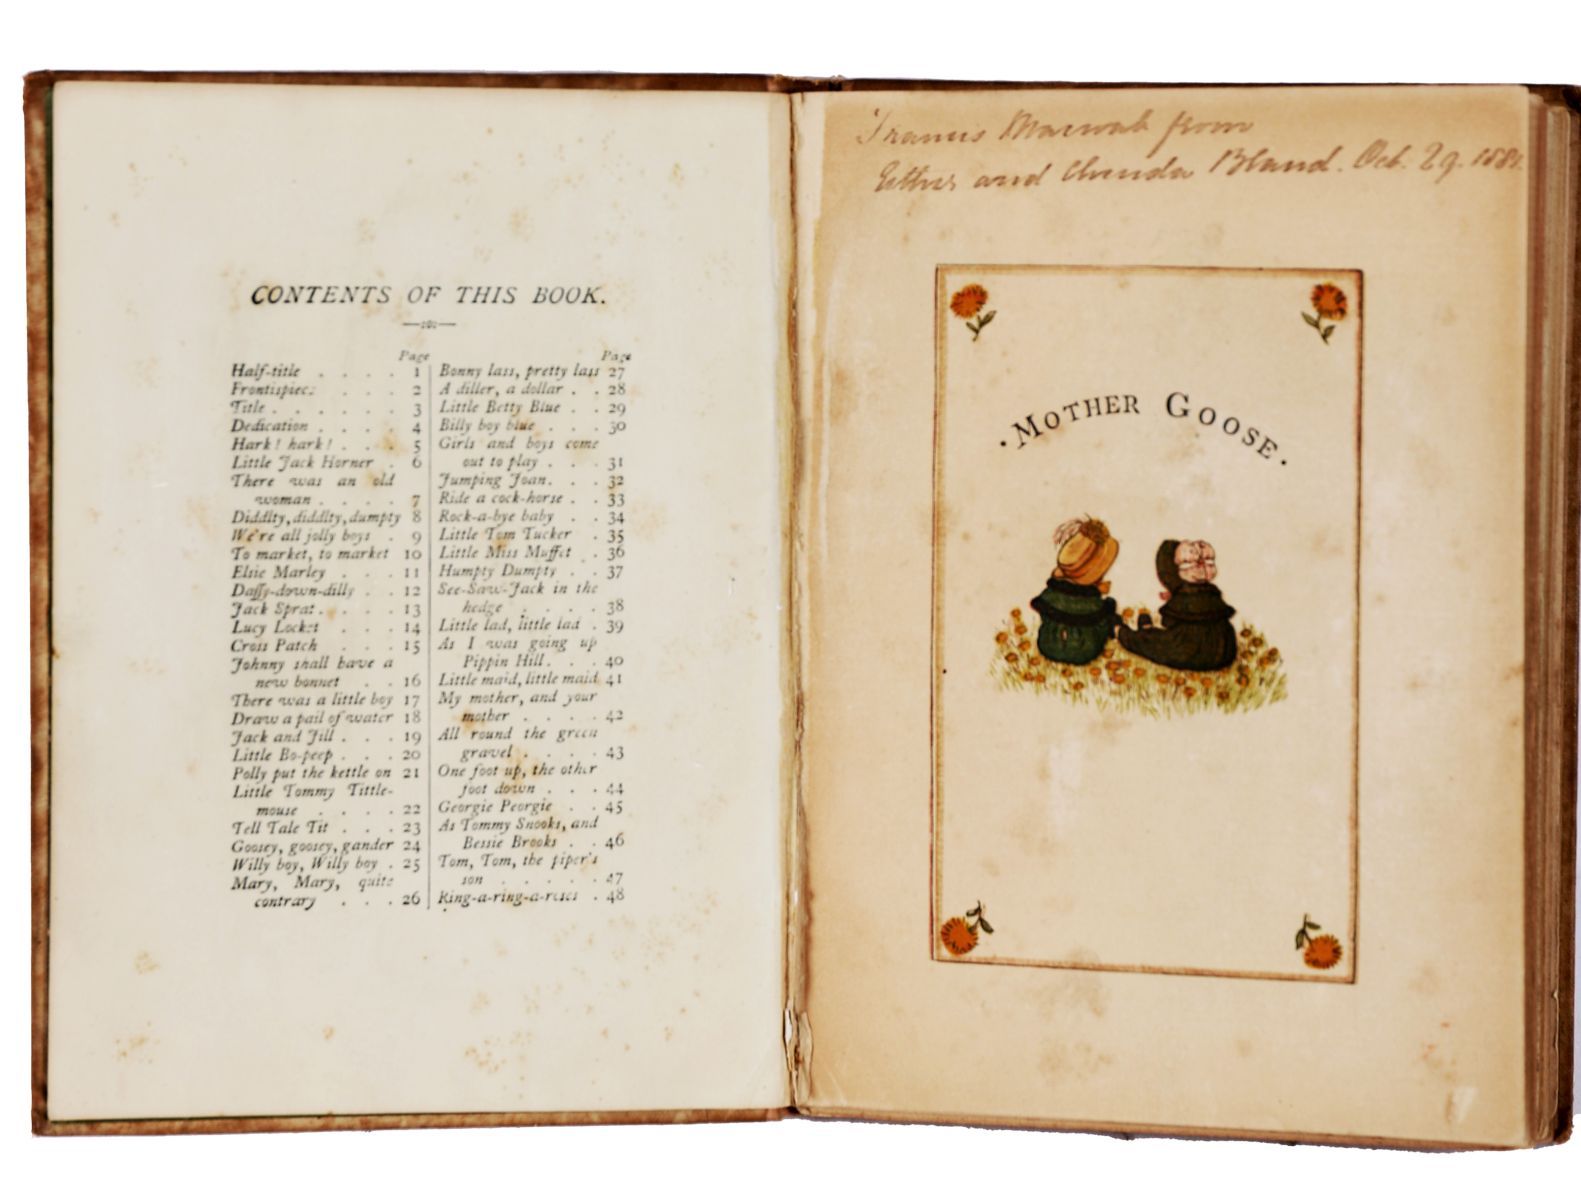 CONTENTS OF THIS BOOK.
Page
Half-title . . . . 1
Frontispiece . . . 2
Title . . . . . . 3
Dedication . . . . 4
Hark! hark! . . . 5
Little Jack Horner . 6
There was an old
woman . . . . 7
Diddlty, diddlty, dumpty 8
We're all jolly boys . 9
To market, to market 10
Elsie Marley . . . 11
Daffy-down-dilly . . 12
Jack Sprat . . . . 13
Lucy Locket . . . 14
Cross Patch . . . 15
Johnny shall have a
new bonnet . . 16
There was a little boy 17
Draw a pail of water 18
Jack and Jill . . . 19
Little Bo-peep . . . 20
Polly put the kettle on 21
Little Tommy Tittle-
mouse . . . . 22
Tell Tale Tit . . . 23
Goosey, goosey, gander 24
Willy boy, Willy boy . 25
Mary, Mary, quite
contrary . . . 26
Page
Bonny lass, pretty lass 27
A diller, a dollar . . 28
Little Betty Blue . . 29
Billy boy blue . . . 30
Girls and boys come
out to play . . . 31
Jumping Joan . . . 32
Ride a cock-horse . . 33
Rock-a-bye baby . . 34
Little Tom Tucker . 35
Little Miss Muffet . 36
Humpty Dumpty . . 37
See-Saw-Jack in the
hedge . . . . 38
Little lad, little lad . 39
As I was going up
Pippin Hill . . . 40
Little maid, little maid 41
My mother, and your
mother . . . . 42
All round the green
gravel . . . . 43
One foot up, the other
foot down . . . 44
Georgie Peorgie . . 45
As Tommy Snooks, and
Bessie Brooks . . 46
Tom, Tom, the piper's
son . . . . . 47
Ring-a-ring-a-roses . 48
Francis from
and Bland. Oct. 29.
·MOTHER GOOSE·